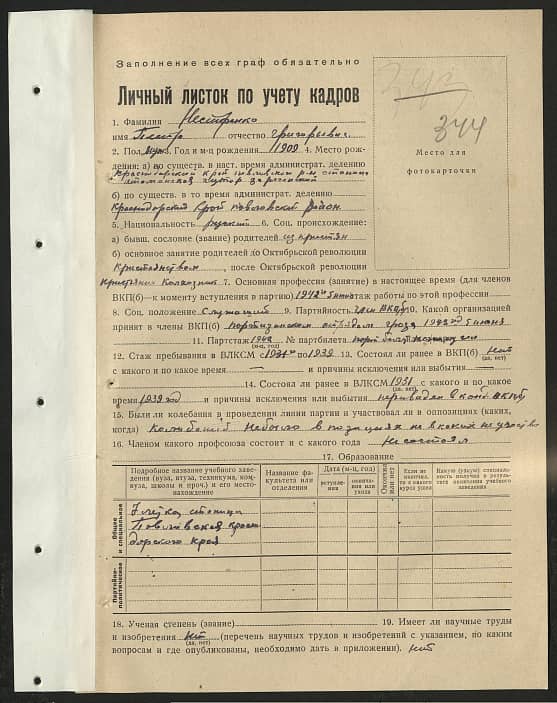 Заполнение всех граф обязательно
Личный листок по учету кадров
344
Место для
фотокарточки
1. Фамилия Нестеренко
имя Петро отчество Григорьевич
2. Пол муж 3. Год и м-ц рождения 1909 4. Место рож-
дения: а) по существ. в наст. время администрат. делению
Краснодарский край
хутор
б) по существ. в то время администрат. делению
Краснодарский край Павловский район
5. Национальность русский 6. Соц. происхождение:
а) бывш. сословие (звание) родителей из крестян
б) основное занятие родителей до Октябрьской революции
, после Октябрьской революции
Колхозник 7. Основная профессия (занятие) в настоящее время (для членов
ВКП(б)—к моменту вступления в партию) 1942 стаж работы по этой профессии
8. Соц. положение Служащий 9. Партийность член ВКПб 10. Какой организацией
принят в члены ВКП(б) партизанским отрядом гроза 1942 год
11. Партстаж 1942 № партбилета
(м-ц, год)
12. Стаж пребывания в ВЛКСМ с 1931 по 1939 13. Состоял ли ранее в ВКП(б) нит
(да, нет)
с какого и по какое время — и причины исключения или выбытия —
14. Состоял ли ранее в ВЛКСМ 1931 с какого и по какое
(да, нет)
время 1939 год и причины исключения или выбытия переведен в конд ВКПб
15. Были ли колебания в проведении линии партии и участвовал ли в оппозициях (каких,
когда) Колибаний Небыло в
16. Членом какого профсоюза состоит и с какого года Несостоял
17. Образование
Подробное название учебного заве-
дения (вуза, втуза, техникума, ком-
вуза, школы и проч.) и его место-
нахождение
Название фа-
культета или
отделения
Дата (м-ц, год)
вступле-
ния
окончания
или
ухода
Окончил
или нет
Если не
окончил,
то с какого
курса ушел
Какую (узкую) специаль-
ность получил в резуль-
тате окончания учебного
заведения
Общее
и специальное
станица
Павловская Красно
дарского края
Партийно-
политическое
18. Ученая степень (звание) 19. Имеет ли научные труды
и изобретения нит (перечень научных трудов и изобретений с указанием, по каким
(да, нет)
вопросам и где опубликованы, необходимо дать в приложении). нит